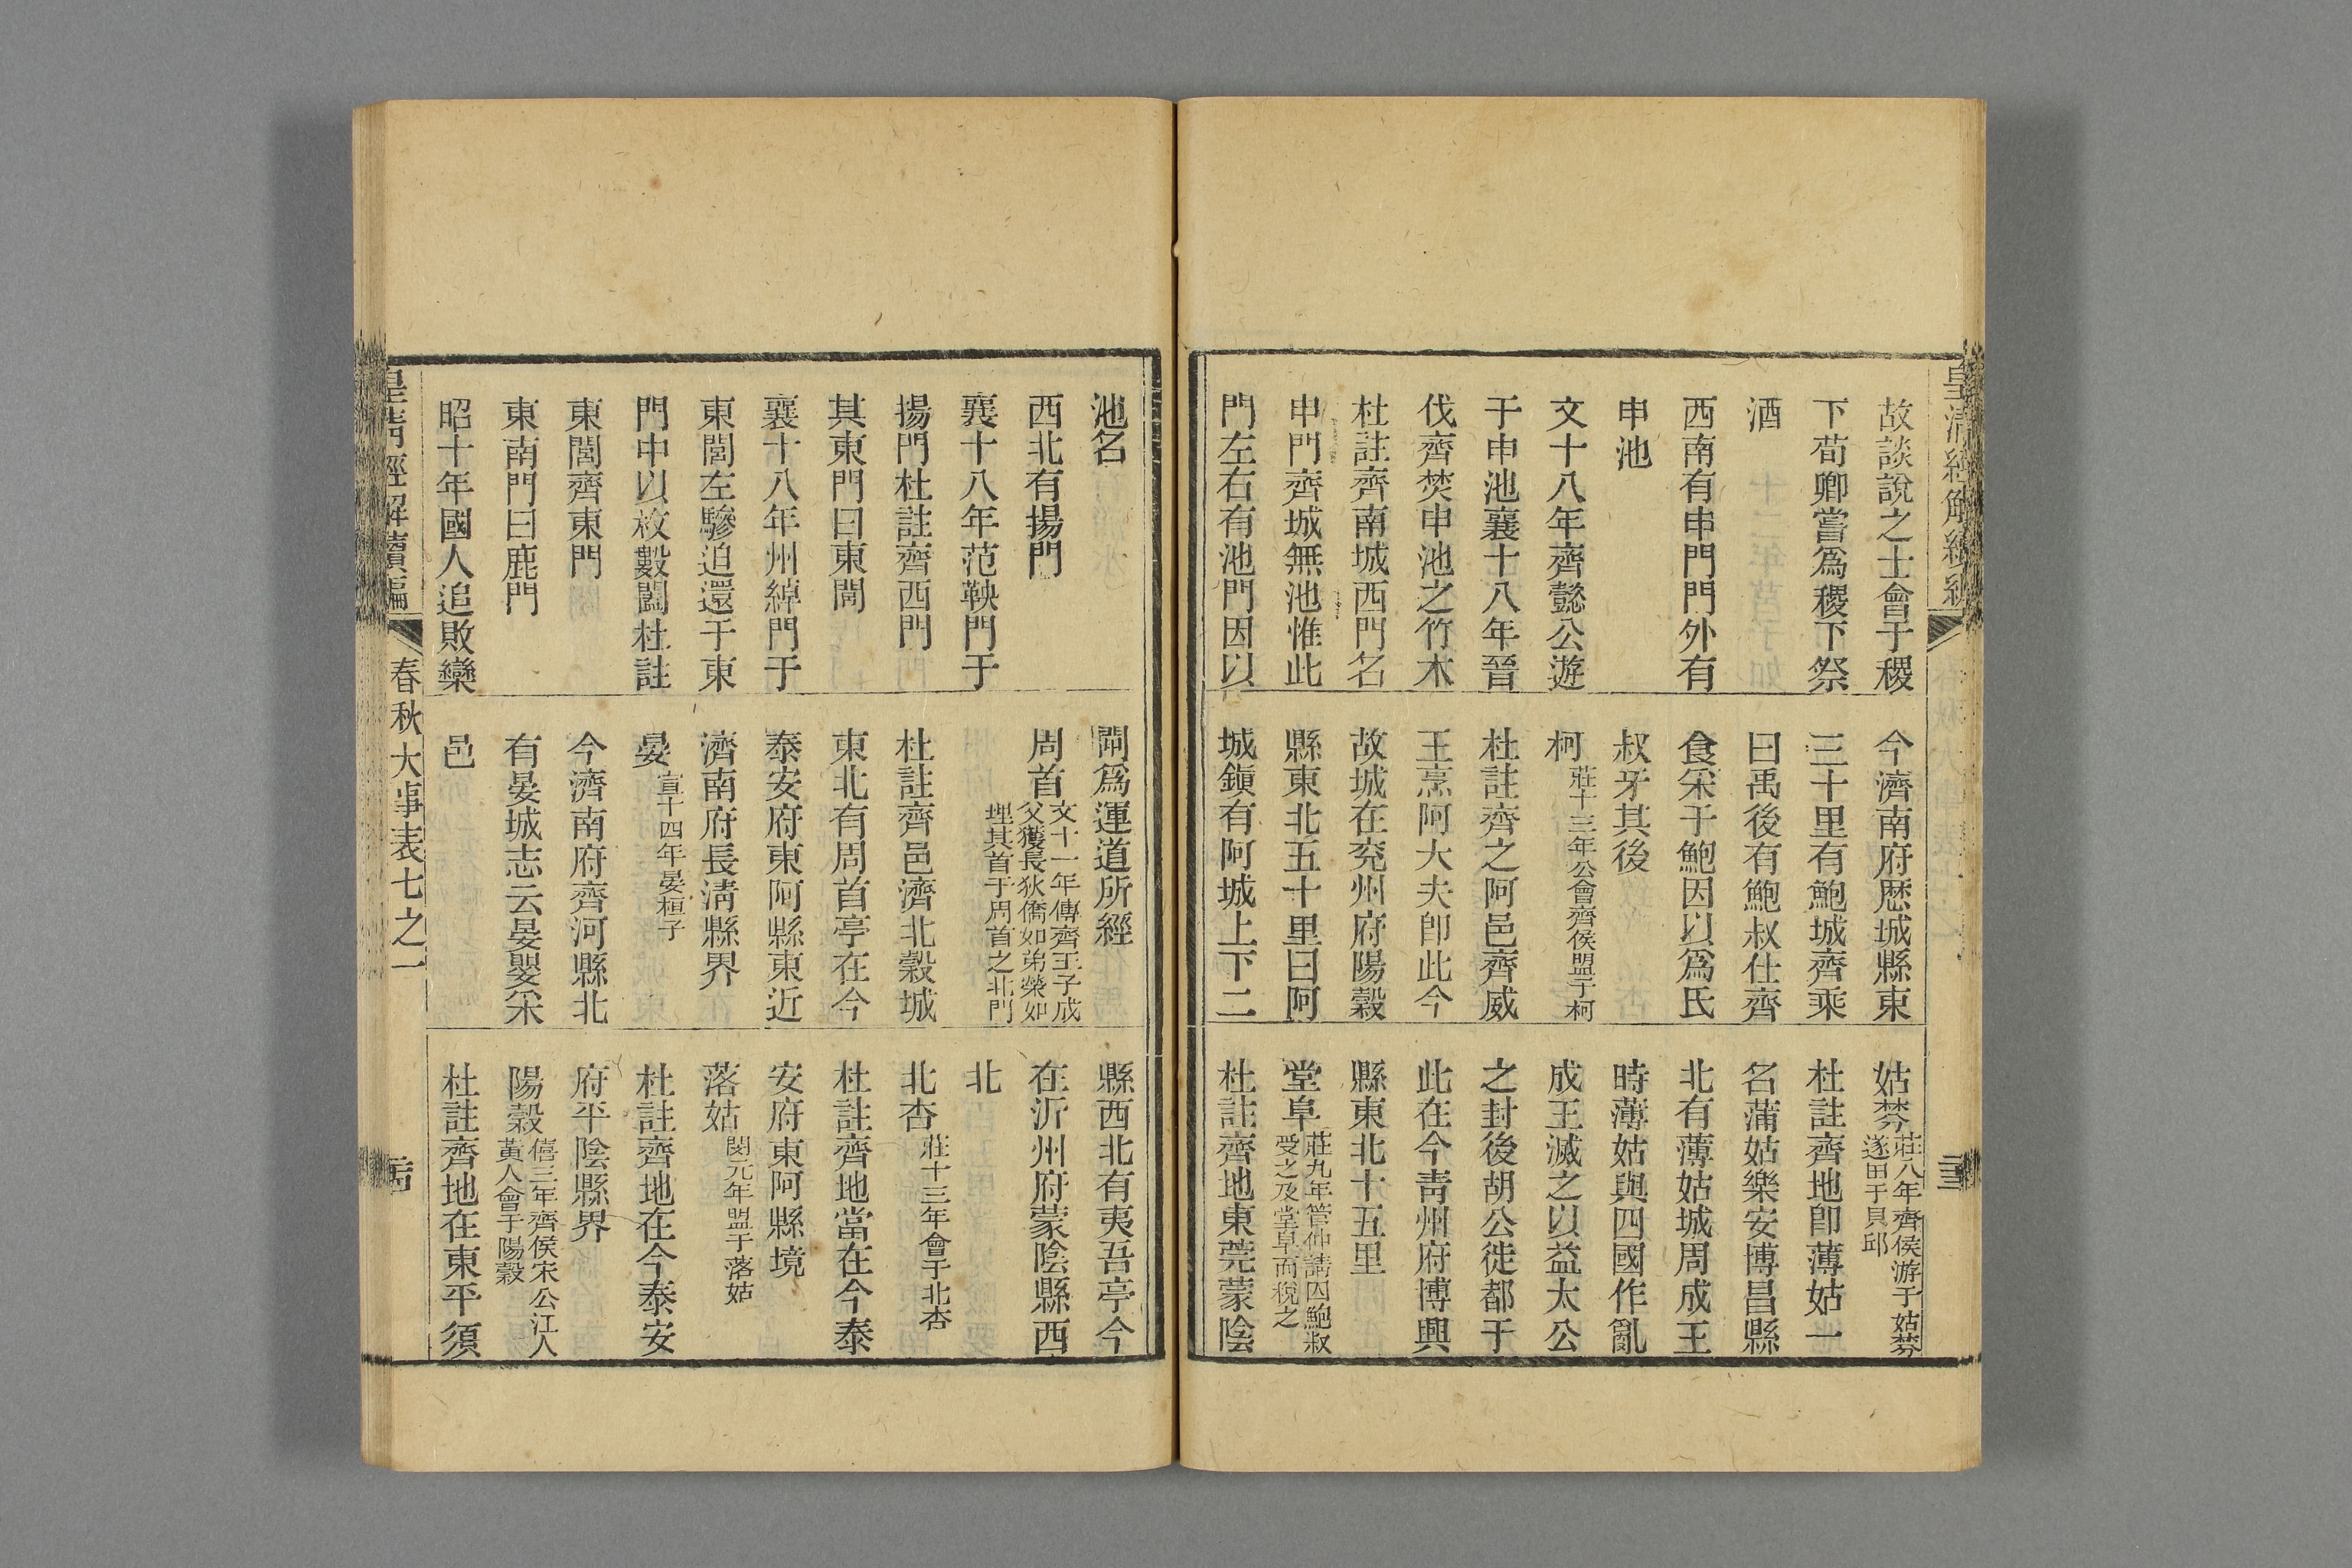 皇清經解續編
故談說之士會于稷
下荀卿嘗爲稷下祭
酒
西南有申門門外有
申池
文十八年齊懿公遊
于申池襄十八年晉
伐齊焚申池之竹木
杜註齊南城西門名
申門齊城無池惟此
門左右有池門因以
今濟南府歷城縣東
三十里有鮑城齊乘
曰禹後有鮑叔仕齊
食采于鮑因以爲氏
叔牙其後
柯莊十三年公會齊侯盟于柯
杜註齊之阿邑齊威
王烹阿大夫卽此今
故城在兗州府陽穀
縣東北五十里曰阿
城鎭有阿城上下二
姑棼莊八年齊侯游于姑棼
遂田于貝邱
杜註齊地卽薄姑一
名蒲姑樂安博昌縣
北有薄姑城周成王
時薄姑與四國作亂
成王滅之以益太公
之封後胡公徙都于
此在今靑州府博興
縣東北十五里
堂阜莊九年管仲請囚鮑叔
受之及堂阜而稅之
杜註齊地東莞蒙陰
池名
西北有揚門
襄十八年范鞅門于
揚門杜註齊西門
其東門曰東閭
襄十八年州綽門于
東閭左驂迫還于東
門中以枚數闔杜註
東閭齊東門
東南門曰鹿門
昭十年國人追敗欒
閘爲運道所經
周首文十一年傳齊王子成
父獲長狄僑如弟榮如
埋其首于周首之北門
杜註齊邑濟北穀城
東北有周首亭在今
泰安府東阿縣東近
濟南府長淸縣界
晏宣十四年晏桓子
今濟南府齊河縣北
有晏城志云晏嬰采
邑
縣西北有夷吾亭今
在沂州府蒙陰縣西
北
北杏莊十三年會于北杏
杜註齊地當在今泰
安府東阿縣境
落姑閔元年盟于落姑
杜註齊地在今泰安
府平陰縣界
陽穀僖三年齊侯宋公江人
黃人會于陽穀
杜註齊地在東平須
皇清經解續編
春秋大事表七之一